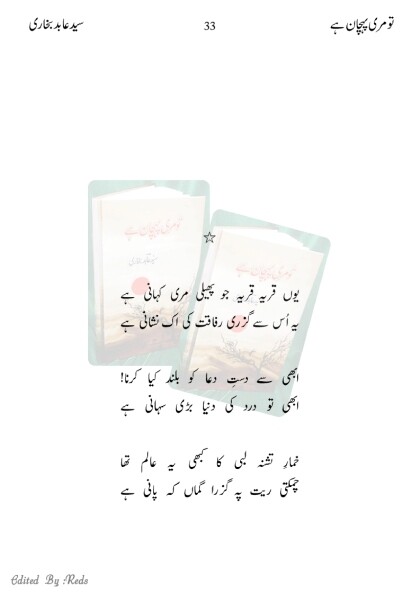 تو مری پہچان ہے 33 سید عابد بخاری
تو مری پہچان ہے
تو مری پہچان ہے
☆
یوں قریہ قریہ جو پھیلی مری کہانی ہے
یہ اُس سے گزری رفاقت کی اک نشانی ہے
ابھی سے دستِ دعا کو بلند کیا کرنا!
ابھی تو درد کی دنیا بڑی سہانی ہے
خمارِ تشنہ لبی کا کبھی یہ عالم تھا
چمکتی ریت پہ گزرا گماں کہ پانی ہے
Edited By :Reds